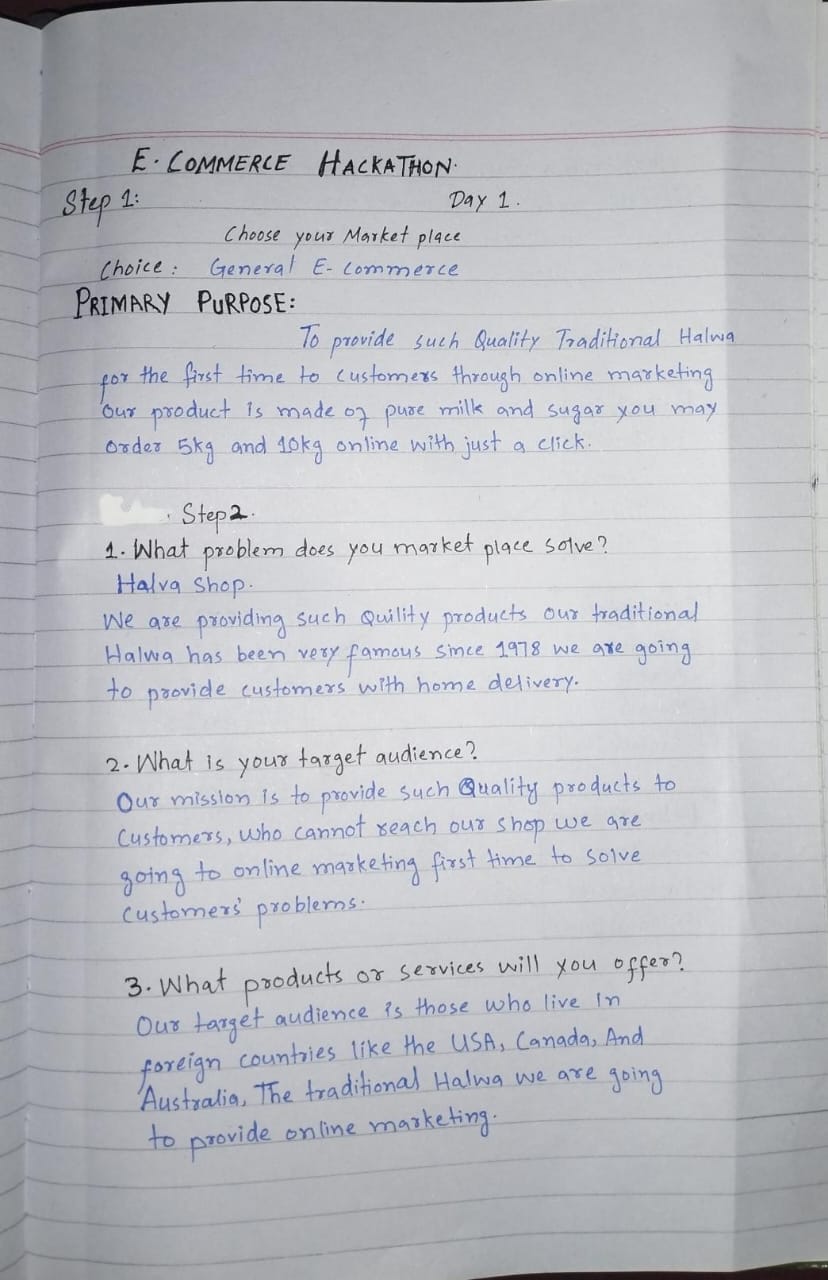 E. COMMERCE HACKATHON.
Step 1:
Day 1.
Choose your Market place
Choice: General E- Commerce
PRIMARY PURPOSE:
To provide such Quality Traditional Halwa
for the first time to customers through online marketing
our product is made of pure milk and sugar you may
order 5kg and 10kg online with just a click.
Step 2.
1. What problem does you market place solve?
Halva Shop.
We are providing such Quility products our traditional
Halwa has been very famous since 1978 we are going
to provide customers with home delivery.
2. What is your target audience?
Our mission is to provide such Quality products to
Customers, who cannot reach our shop we are
going to online marketing first time to solve
customers' problems.
3. What products or services will you offer?
Our target audience is those who live In
foreign countries like the USA, Canada, And
Australia, The traditional Halwa we are going
to provide online marketing.